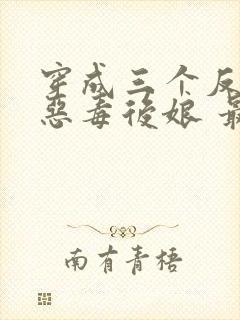 穿成三个反
恶毒后娘 最
南有青梧